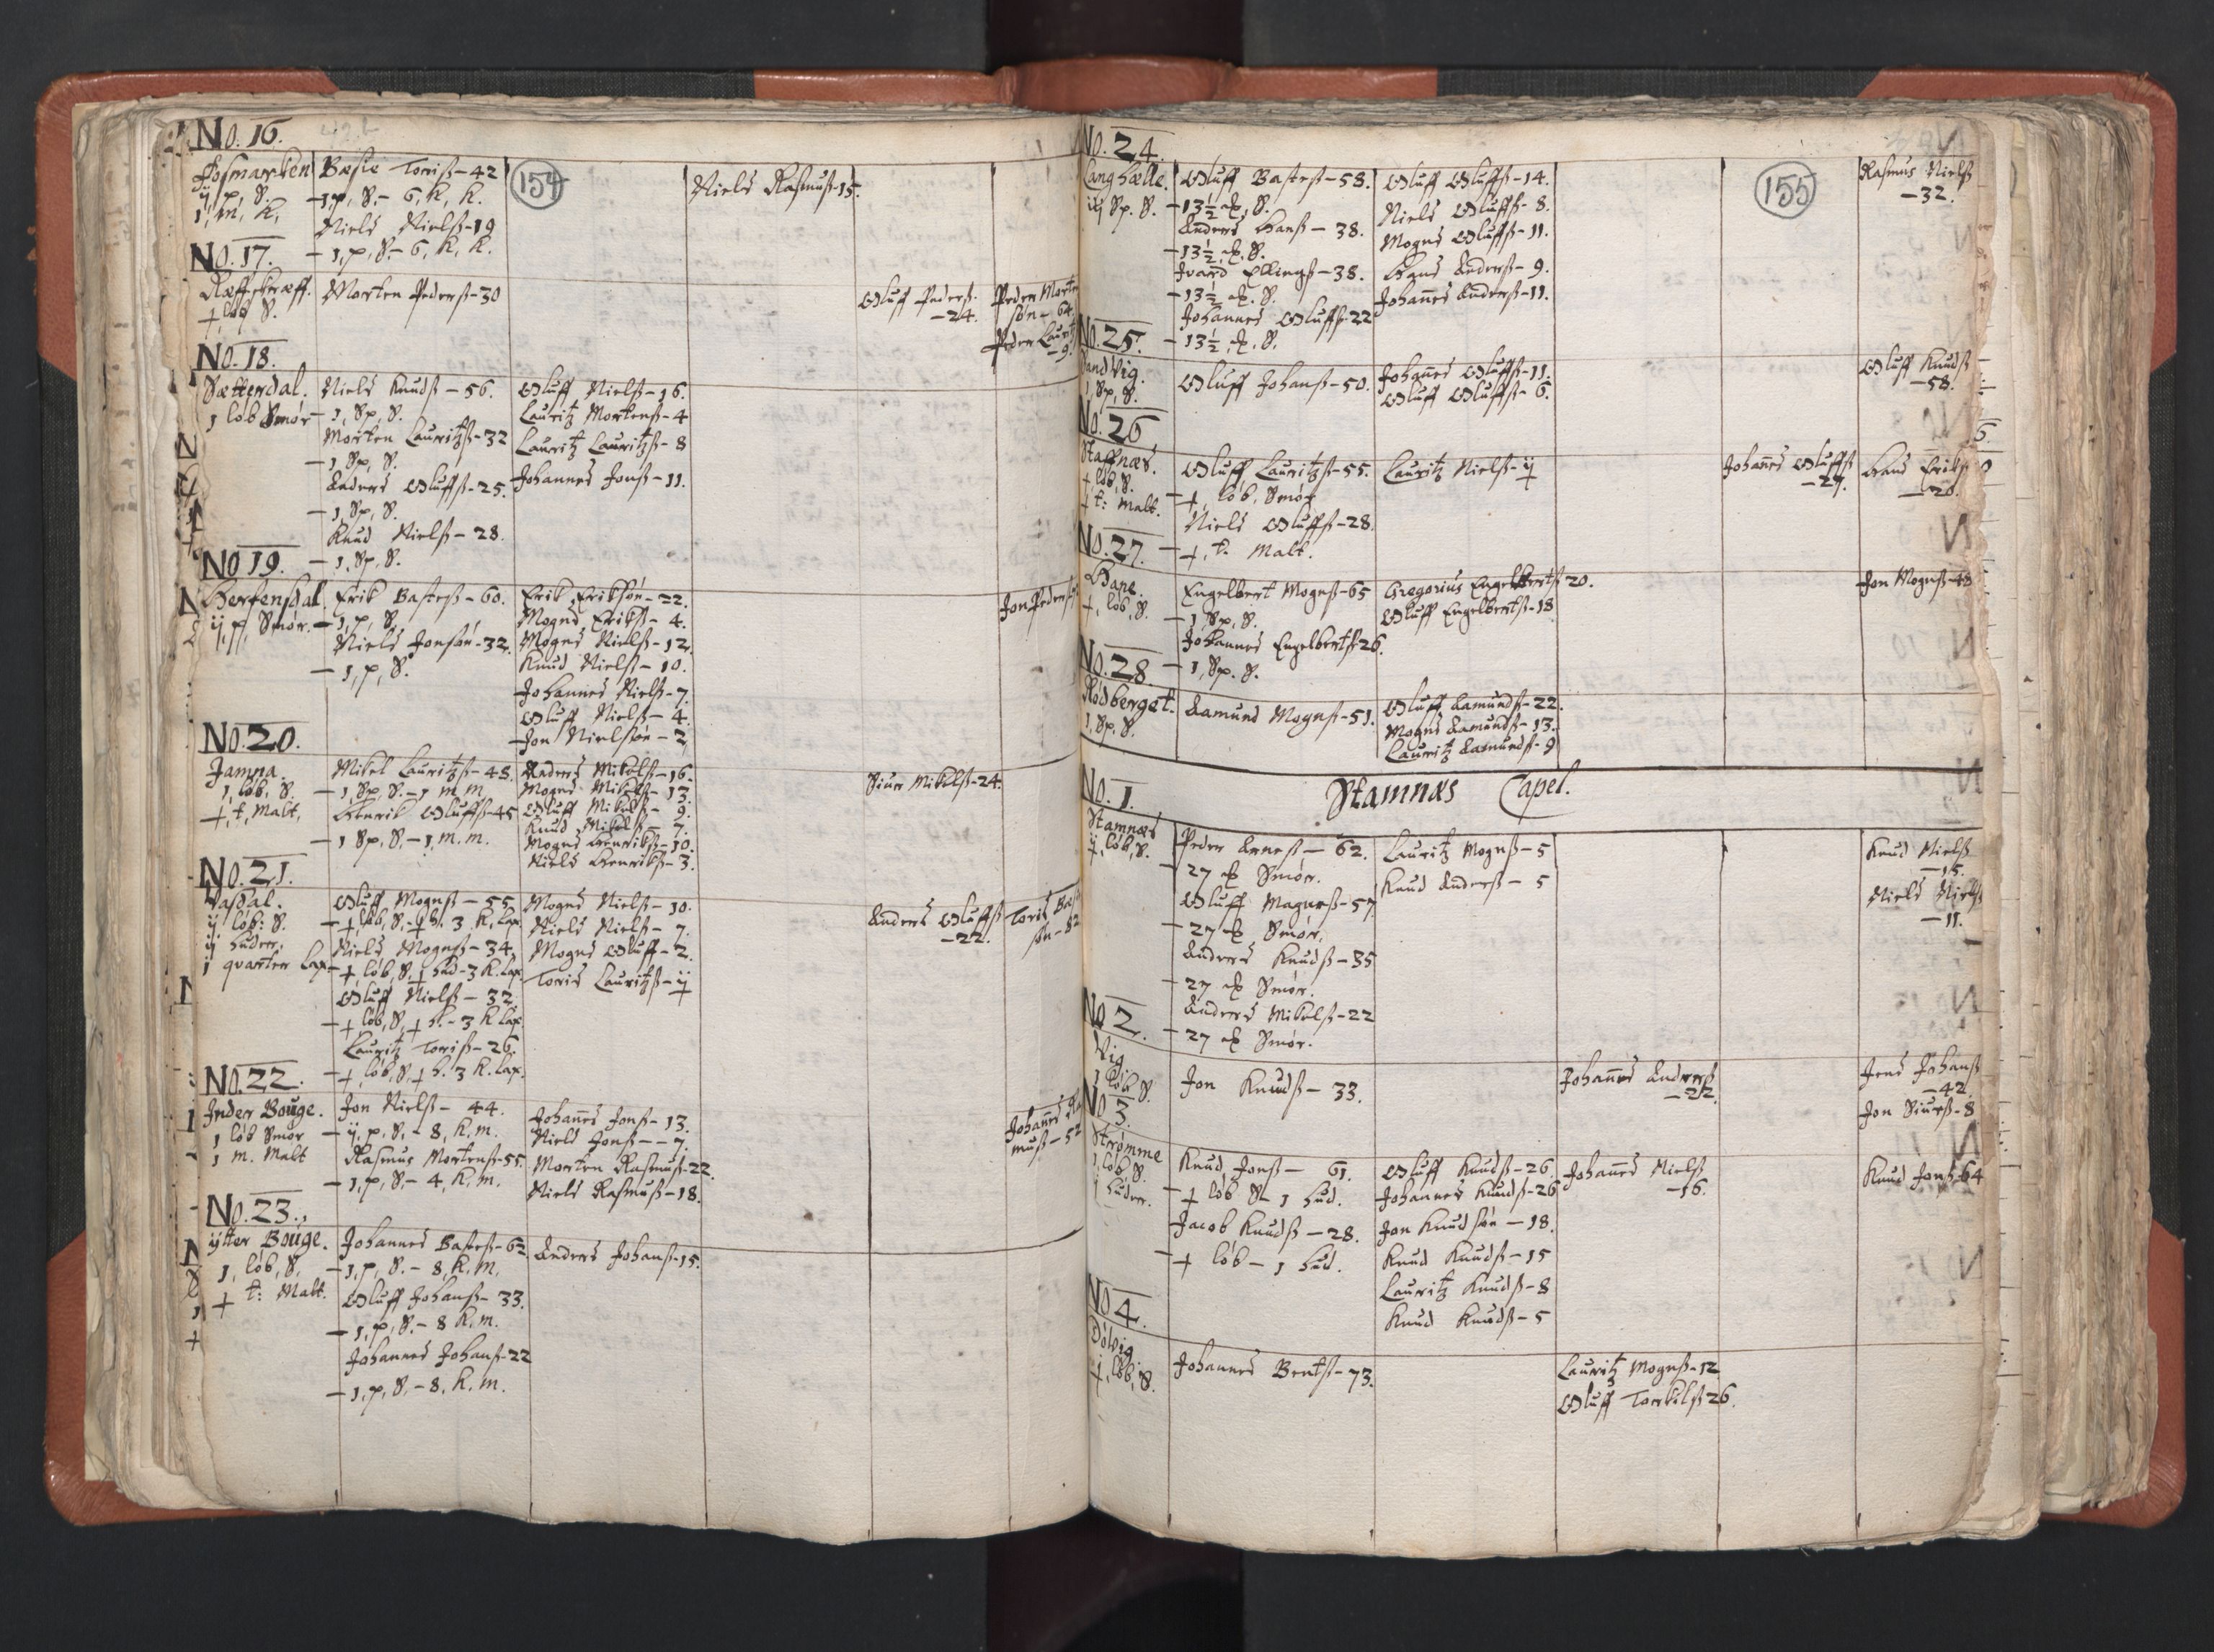 No. 16.
Fosmarken
ij, p, S.
1, m, K,
Bæste Toriß - 42
- 1, p, S. - 6, K, K.
Niels Nielß - 19
- 1, p, S. - 6, K, K.
154
Niels Rasmuß - 15.
No. 17.
Ræffskræff.
Morten Pederß - 30
Oluff Pederß.
- 24.
Peder Morte
søn - 64
Peder Laurit
- 9.
No. 18.
Sættendal.
1 løb Smør
Niels Knudß - 56.
- 1, Sp, S.
Morten Lauritzß - 32
- 1 Sp, S.
Anders Oluffß - 25.
- 1 Sp, S.
Knud Nielß - 28.
- 1, Sp, S.
Oluff Nielß - 16.
Lauritz Mortenß - 4
Lauritz Lauritzß - 8
Johannes Jonß - 11.
No 19.
Herfensdal.
ij, p, Smør.
Erik Basteß - 60.
- 1, p, S.
Niels Jonsøn - 32.
- 1, p, S.
Erik Eriksøn - 22.
Mogns Erikß - 4.
Mogns Nielß - 12.
Knud Nielß - 10.
Johannes Nielß - 7.
Oluff Nielß - 4.
Jon Nielsøn - 2
Jon Pederß
No. 20.
Jamna.
1, løb, S.
+, t, Malt,
Mikel Lauritzß - 48.
- 1, Sp, S. - 1 m m
Henrik Oluffß - 45
- 1 Sp, S, - 1, m. m.
Anders Mikelß - 16.
Mogns Mikelß - 13
Oluff Mikelß - 9.
Knud Mikelß - 7.
Mogns Henrikß - 10.
Niels Henrikß - 3.
Siur Mikelß - 24.
No. 21.
Vasdal.
ij løb: S.
ij Huder.
1 quarter Lax
Oluff Mognß - 55
- + løb, S, - + h. 3 K. Lax
Niels Mognß - 34,
- + løb, S, + hud - 3 K. Lax.
Oluff Nielß - 32.
- + løb, S, + h. - 3 K Lax.
Lauritz Toriß - 26.
- + løb, S, + h. 3 K. Lax.
Mogns Nielß - 10.
Niels Nielß - 7.
Mogns Oluff - 2.
Toris Lauritzß - ij
+
Anders Oluffß
- 22.
Toris Bast
søn - 82
No. 22.
Inder Bouge.
1 løb Smør
1 m. Malt
Jon Nielß - 44.
- ij, p, S, - 8, K, m.
Rasmus Mortenß - 55.
- 1, p, S, - 4, K, m.
Johanes Jonß - 13.
Niels Jonß - - 7.
Morten Rasmuß - 22
Niels Rasmuß - 18.
Johanes Ra
muß - 52
No. 23.
ytter Bouge.
1, løb, S,
+ t: Malt.
Johannes Basteß - 62
- 1, p, S. - 8, K, m.
Oluff Johanß - 33.
- 1, p, S. - 8 K. m.
Johannes Johanß - 22
- 1, p, S. - 8, K, m.
Anders Johanß - 15.
No. 24.
Langhælle.
iij Sp. S.
Oluff Basteß - 58.
- 13½ ℔, S.
Anders Hanß - 38.
- 13½, ℔, S.
Ivard Ellingß - 38.
- 13½ ℔. S.
Johannes Oluffß - 22
- 13½, ℔, S.
Oluff Oluffß - 14.
Niels Oluffß - 8.
Mogns Oluffß - 11.
Hans Anderß - 9.
Johanes Anderß - 11.
155
Rasmus Nielß
- 32.
No. 25.
Sandvig.
1 Sp, S.
Oluff Johanß - 50.
Johanes Oluffß - 11.
Oluff Oluffß - 6.
Oluff Knudß
- 58.
No. 26
Staffnæs.
+ løb, S.
+ t: Malt.
Oluff Lauritzß - 55.
- +, løb, Smør
Niels Oluffß - 28.
- +, t. Malt.
Lauritz Nielß - ij
+
Johanes Oluffß
- 27.
Hans Erikß
- 20.
No. 27.
Hane.
+, løb, S.
Engelbert Mognß - 65
- 1, Sp, S.
Johannes Engelbertß - 26.
- 1, Sp. S.
Gregorius Engelbertß - 20.
Oluff Engelbertß - 18
Jon Mognß - 48
No. 28
Rødberget.
1, Sp. S.
Aamund Mognß - 51.
Oluff Aamundß - 22.
Mogns Aamundß - 13.
Lauritz Aamundß - 9
Stamnæs Capel.
No. 1.
Stamnæs
ij, løb, S.
Peder Arneß - 62.
- 27 ℔ Smør.
Oluff Magnuß - 57
- 27 ℔ Smør,
Anders Knudß - 35
- 27 ℔ Smør.
Anders Mikelß - 22
- 27 ℔ Smør.
Lauritz Mognß - 5
Knud Anderß - 5
Knud Nielß
- 15.
Niels Nielß
- 11.
No 2.
Vig
1 løb S.
Jon Knudß - 33.
Johanes Anderß
- 22.
Jens Johanß
- 42.
Jon Siurß - 8
No 3.
Strømme
1, løb, S.
1 huder.
Knud Jonß - 61.
- + løb S - 1 hud.
Jacob Knudß - 28.
- + løb - 1 hud.
Oluff Knudß - 26
Johannes Knudß - 26
Jon Knudsøn - 18.
Knud Knudß - 15
Lauritz Knudß - 8
Knud Knudß - 5
Johanes Nielß
- 16.
Knud Jonß - 64
No 4.
Dølvig
+, løb, S.
Johannes Bentß - 73.
Lauritz Mognß - 12
Oluff Torkilß - 26.